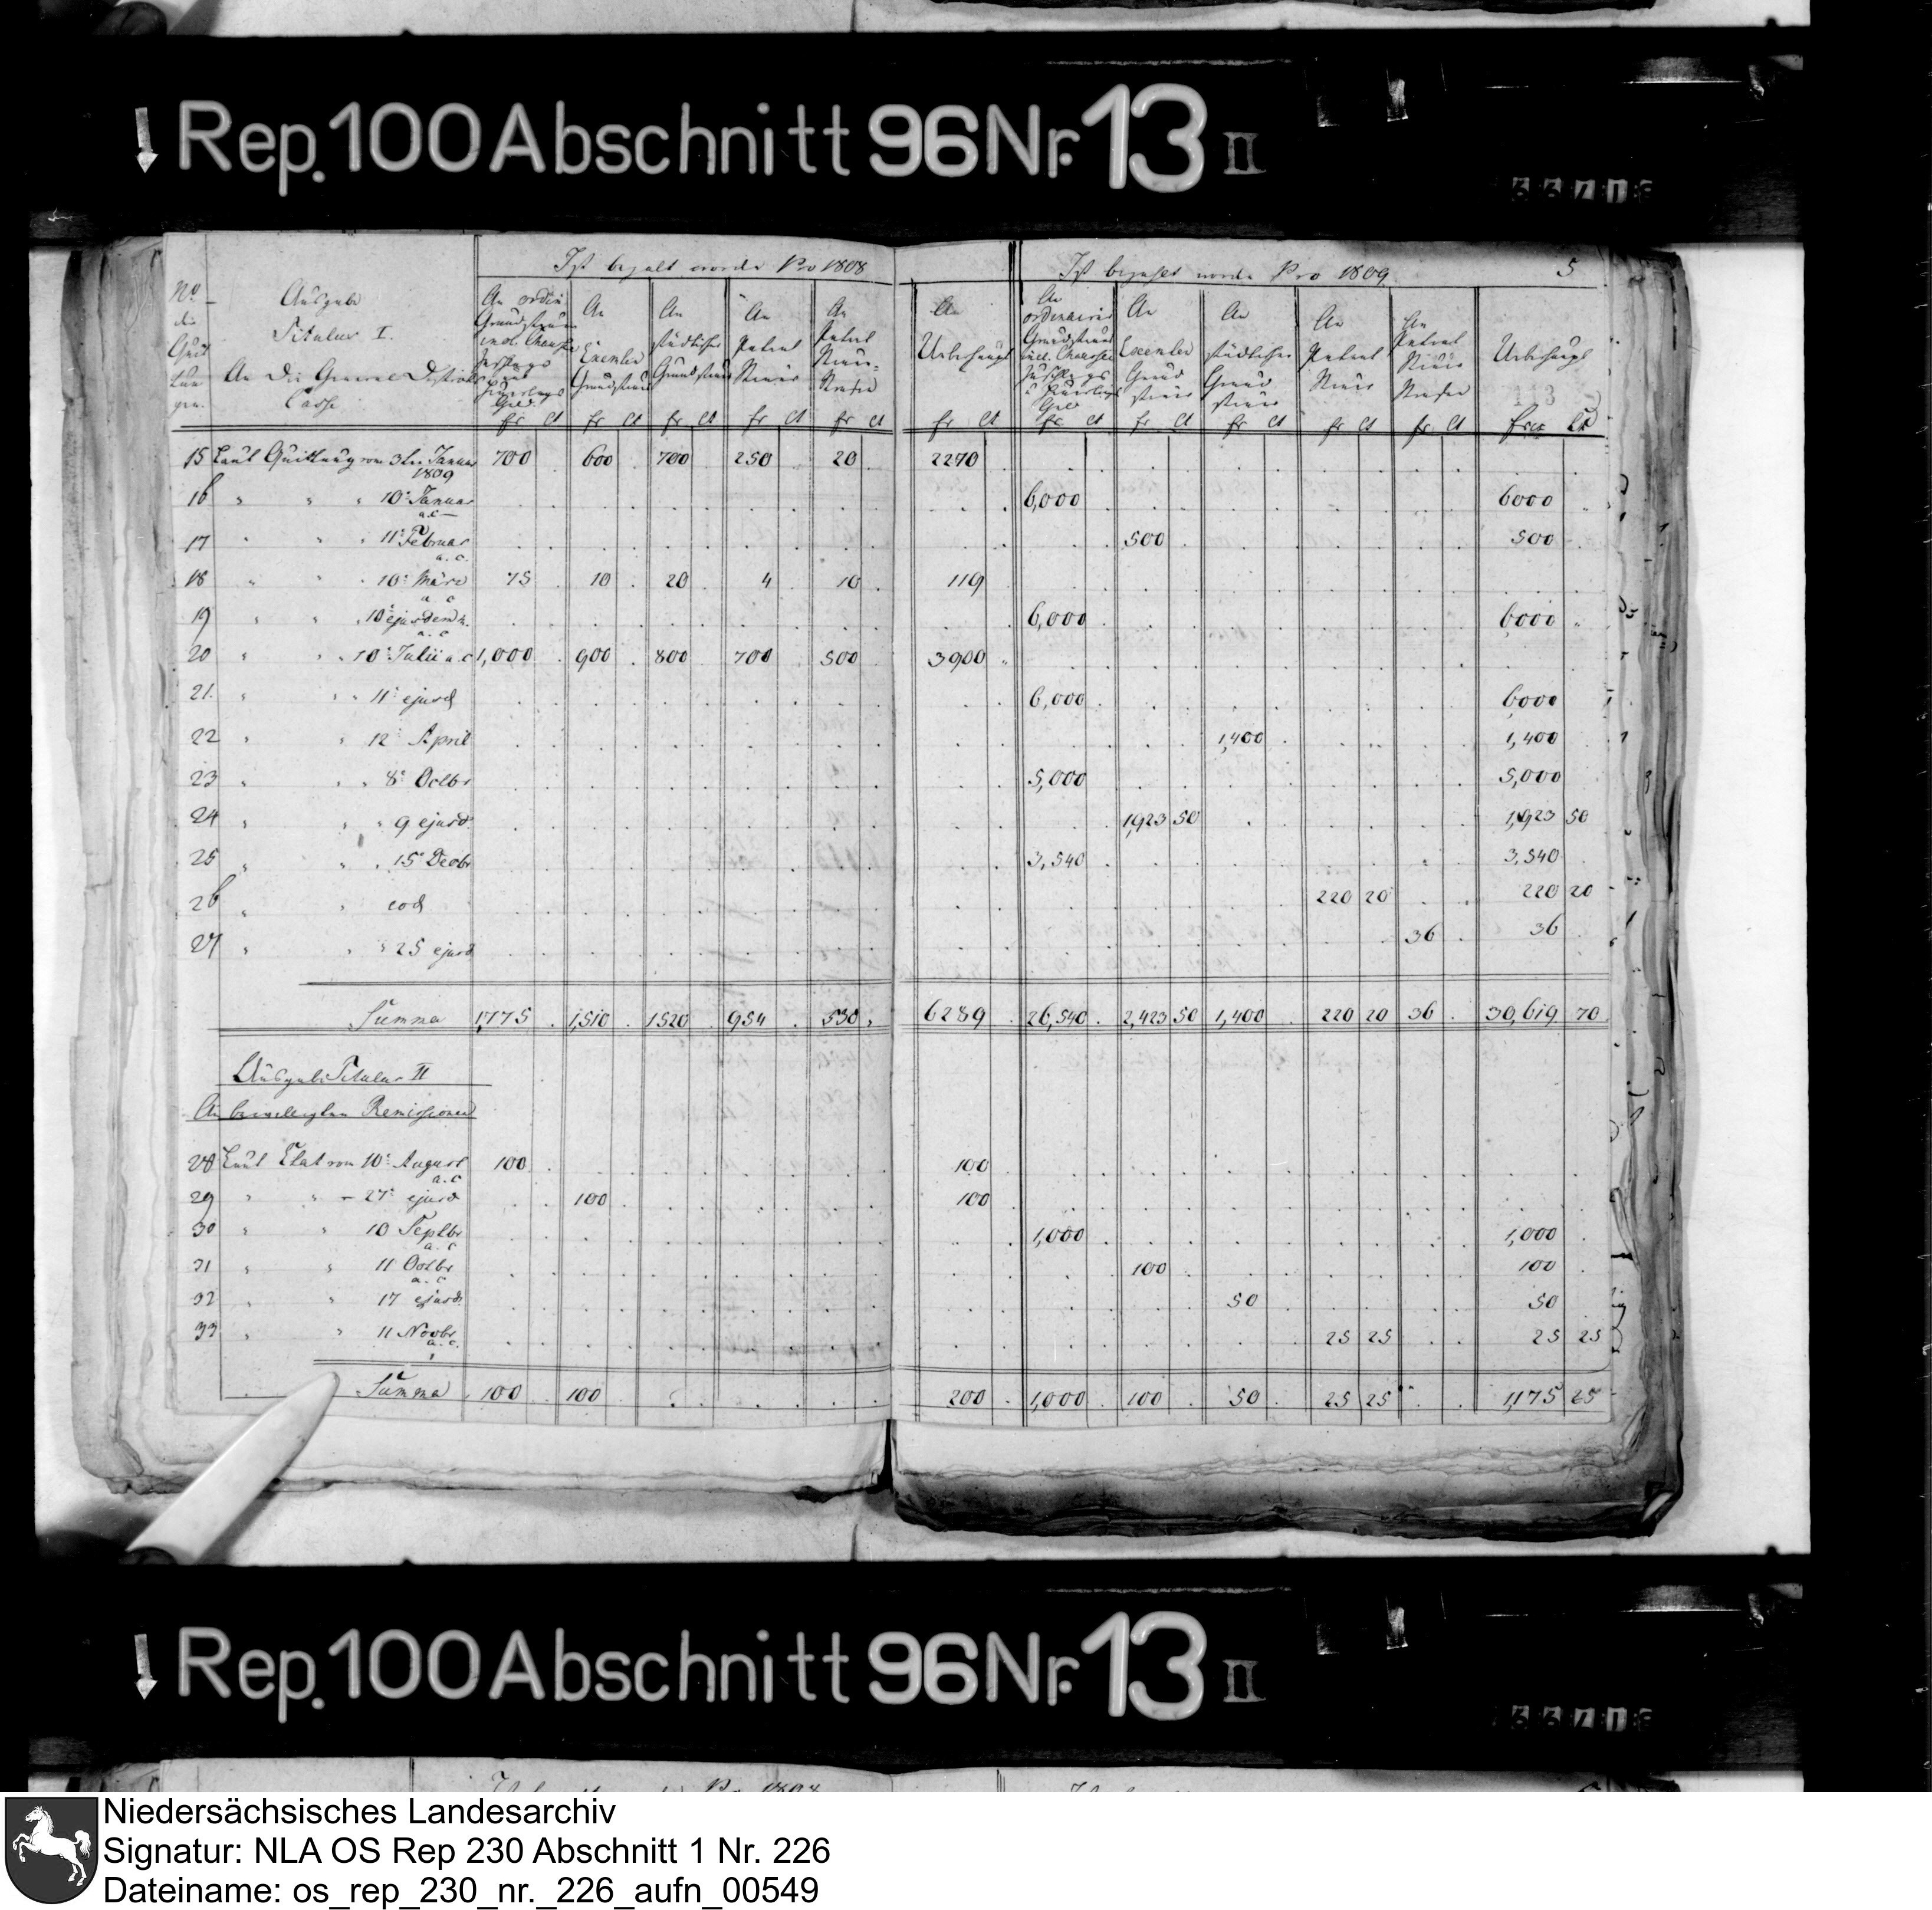 Rep. 100 Abschnitt 96 Nr. 13 II
Ist bezalt worde Pro 1808
Ist bezahlt worde Pro 1809 5
No. der Quittungen
Ausgabe
Titulus I.
An die General Districts
Casse
An ordin Grundsteuer incl. Chaussee Zuschlags und Heuerlings Geld
An Exemten Grundsteuer
An städtischer Grundsteuer
An Patent Steuer
An Patent Steuer- Strafen
An Ueberhaupt
An ordinairer Grundsteuer incl. Chaussee Zuschlags u Heuerlings Geld
An Exemten Grund steuer
An städtischer Grund steuer
An Patent Steuer
An Patent Steuer Strafen
Ueberhaupt
fr ct fr ct fr ct fr ct fr ct fr ct fr ct fr ct fr ct fr ct fr ct frcs ct
15 Laut Quittung vom 3ten Januar 1809 700 600 700 250 20 2270
16 " " 10t Januar a.c 6,000 6000
17 " " 11t Februar a.c. 500 500
18 " " 10t März a c 75 10 20 4 10 119
19 " " 10t ejusdem m. a.c 6,000 6000
20 " " 10t Julii a.c 1,000 900 800 700 500 3900
21. " " 11t ejusd 6,000 6000
22 " " 12t April 1,400 1,400
23 " " 8t Octbr 5,000 5,000
24 " " 9 ejusd. 1,923 50 1,923 50
25 " " 15t Decbr 3,540 3,540
26 " " eod 220 20 220 20
27 " " 25 ejusd 36 36
Summa 1,775 1,510 1520 954 530 6289 26,540 2,423 50 1,400 220 20 36 30,619 70
Ausgabe Titulus II
An bewilligten Remissionen
28 Laut Etat vom 10t August a.c 100 100
29 " " 27t ejusd 100 100
30 " " 10 Septbr a. c 1,000 1,000
31 " " 11 Octbr a. c 100 100
32 " " 17 ejusd. 50 50
33 " " 11 Novbr a. c. 25 25 25 25
Summa 100 100 200 1,000 100 50 25 25 1,175 25
Rep. 100 Abschnitt 96 Nr. 13 II
Niedersächsisches Landesarchiv
Signatur: NLA OS Rep 230 Abschnitt 1 Nr. 226
Dateiname: os_rep_230_nr._226_aufn_00549